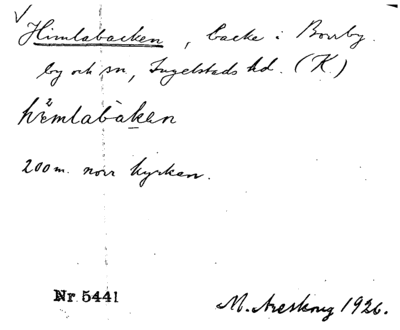 Himlabacken, backe i Borrby.
by och sn, Ingelstads hd. (K.)
hɪ̈mlabaken
200 m. norr kyrkan.
Nr 5441 M. Areskoug 1926.